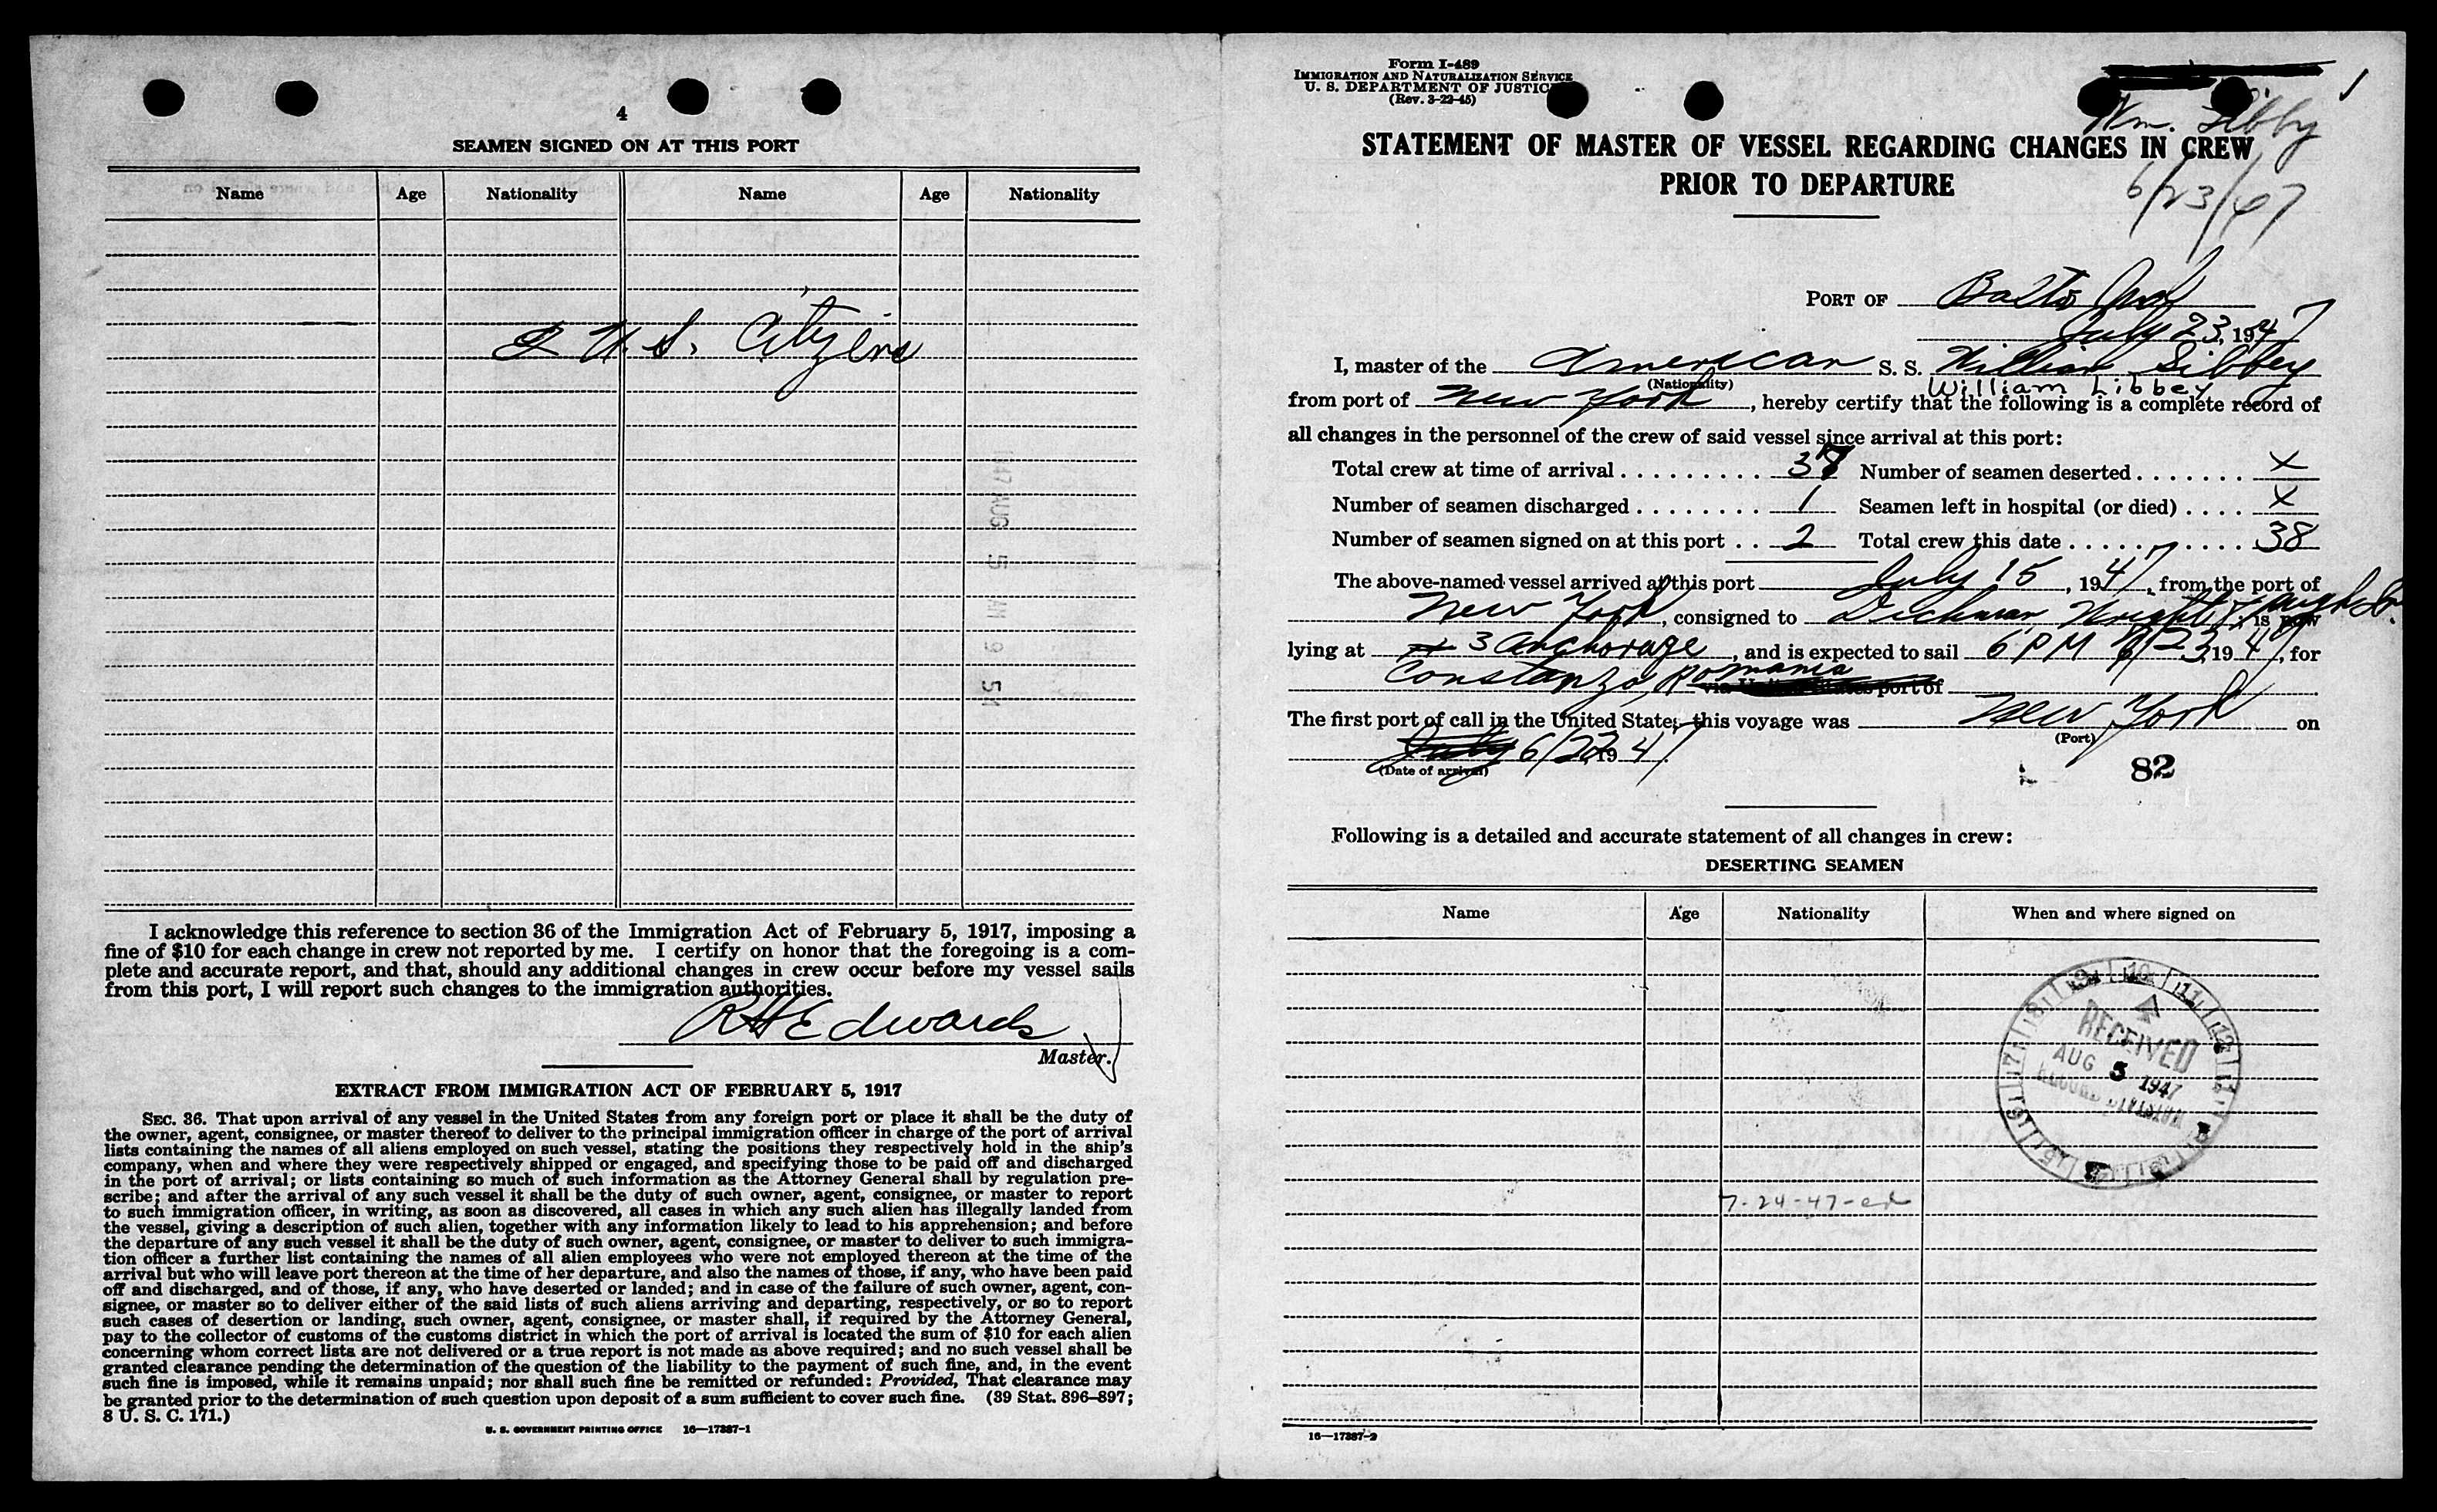 4
SEAMEN SIGNED ON AT THIS PORT
Name Age Nationality Name Age Nationality
2 U.S. Citizens
1947 AUG 5 AM 9 51
I acknowledge this reference to section 36 of the Immigration Act of February 5, 1917, imposing a
fine of $10 for each change in crew not reported by me. I certify on honor that the foregoing is a com-
plete and accurate report, and that, should any additional changes in crew occur before my vessel sails
from this port, I will report such changes to the immigration authorities.
RH Edwards
Master.
EXTRACT FROM IMMIGRATION ACT OF FEBRUARY 5, 1917
SEC. 36. That upon arrival of any vessel in the United States from any foreign port or place it shall be the duty of
the owner, agent, consignee, or master thereof to deliver to the principal immigration officer in charge of the port of arrival
lists containing the names of all aliens employed on such vessel, stating the positions they respectively hold in the ship's
company, when and where they were respectively shipped or engaged, and specifying those to be paid off and discharged
in the port of arrival; or lists containing so much of such information as the Attorney General shall by regulation pre-
scribe; and after the arrival of any such vessel it shall be the duty of such owner, agent, consignee, or master to report
to such immigration officer, in writing, as soon as discovered, all cases in which any such alien has illegally landed from
the vessel, giving a description of such alien, together with any information likely to lead to his apprehension; and before
the departure of any such vessel it shall be the duty of such owner, agent, consignee, or master to deliver to such immigra-
tion officer a further list containing the names of all alien employees who were not employed thereon at the time of the
arrival but who will leave port thereon at the time of her departure, and also the names of those, if any, who have been paid
off and discharged, and of those, if any, who have deserted or landed; and in case of the failure of such owner, agent, con-
signee, or master so to deliver either of the said lists of such aliens arriving and departing, respectively, or so to report
such cases of desertion or landing, such owner, agent, consignee, or master shall, if required by the Attorney General,
pay to the collector of customs of the customs district in which the port of arrival is located the sum of $10 for each alien
concerning whom correct lists are not delivered or a true report is not made as above required; and no such vessel shall be
granted clearance pending the determination of the question of the liability to the payment of such fine, and, in the event
such fine is imposed, while it remains unpaid; nor shall such fine be remitted or refunded: Provided, That clearance may
be granted prior to the determination of such question upon deposit of a sum sufficient to cover such fine. (39 Stat. 896–897;
8 U. S. C. 171.)
U. S. GOVERNMENT PRINTING OFFICE 16—17387-1
Form I-489
IMMIGRATION AND NATURALIZATION SERVICE
U. S. DEPARTMENT OF JUSTICE
(Rev. 3-22-45)
Wm. Libby
6/23/47
STATEMENT OF MASTER OF VESSEL REGARDING CHANGES IN CREW
PRIOR TO DEPARTURE
PORT OF Balto Md
July 23, 1947
I, master of the American S. S. William Libbey
(Nationality) William Libbey
from port of New York, hereby certify that the following is a complete record of
all changes in the personnel of the crew of said vessel since arrival at this port:
Total crew at time of arrival 37 Number of seamen deserted X
Number of seamen discharged 1 Seamen left in hospital (or died) X
Number of seamen signed on at this port 2 Total crew this date 38
The above-named vessel arrived at this port July 15, 1947, from the port of
New York, consigned to Dichman Wright & Pugh Co. is now
lying at # 3 anchorage, and is expected to sail 6 PM 7/23 1947, for
Constanza, Romania via United States port of
The first port of call in the United States this voyage was New York on
(Port)
6/22 1947.
(Date of arrival)
82
Following is a detailed and accurate statement of all changes in crew:
DESERTING SEAMEN
Name Age Nationality When and where signed on
RECEIVED
AUG 5 1947
RECORD DIVISION
7-24-47-
16—17387-2